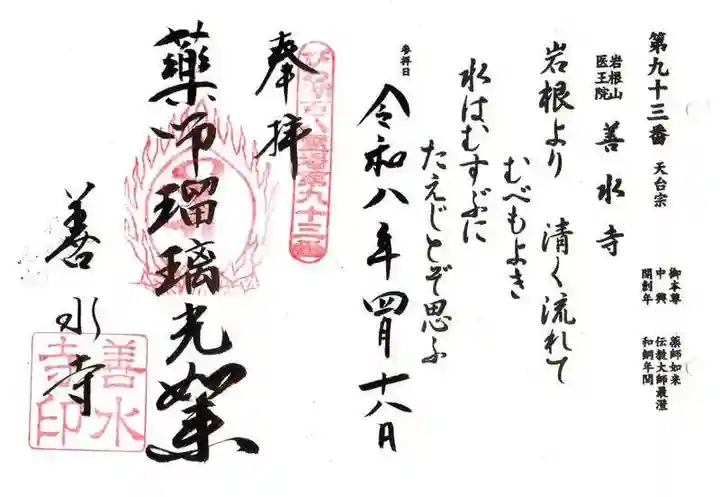 第九十三番 天台宗
岩根山
医王院
善水寺
御本尊 薬師如来
中興 伝教大師最澄
開創年 和銅年間
岩根より 清く流れて
むべもよき
水はむすぶに
たえじとぞ思ふ
参拝日
令和八年四月十八日
奉拝
びわ湖百八霊場第九十三番
薬師瑠璃光如来
善水寺
善水寺印